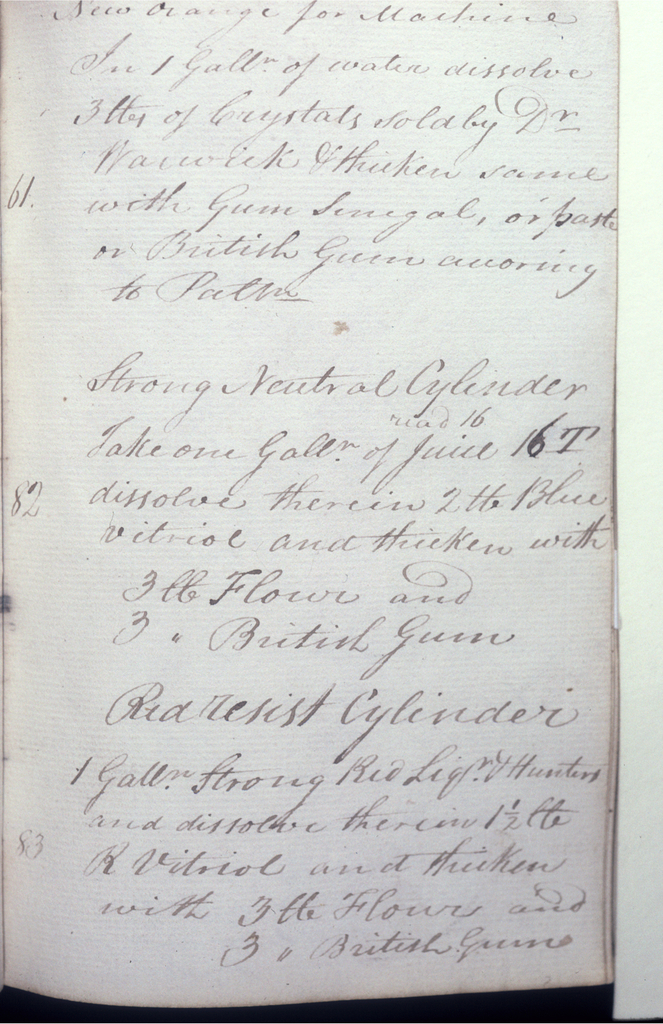 New Orange for Machine
In 1 Galln. of water dissolve
3 lbs of Crystals sold by Dr
Warwick & thicken same
61. with Gum Senegal, or paste
or British Gum accoring
to Pattn
Strong Neutral Cylinder
read 16
Take one Galln. of Juice 16 T
82 dissolve therein 2 lb Blue
Vitriol and thicken with
3 lb Flour and
3 " British Gum
Red resist Cylinder
1 Galln Strong Red Liqr. & Hunters
and dissolve therein 1 1/2 lb
83 R Vitriol and thicken
with 3 lb Flour and
3 " British Gum